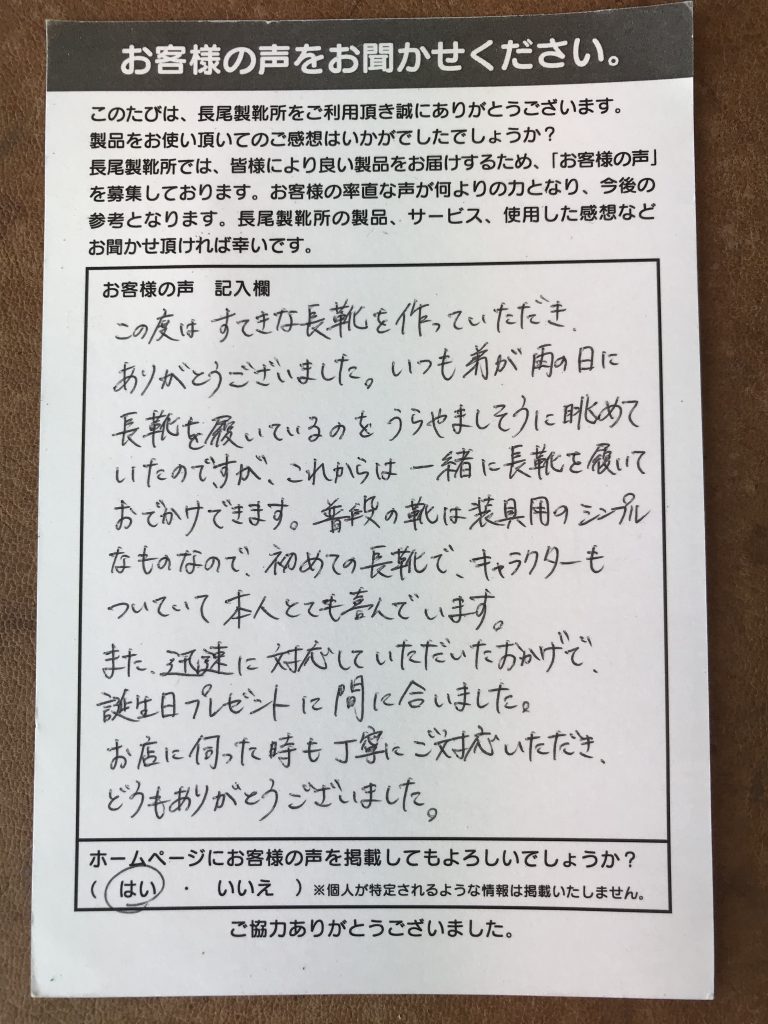 お客様の声をお聞かせください。
このたびは、長尾製靴所をご利用頂き誠にありがとうございます。
製品をお使い頂いてのご感想はいかがでしたでしょうか？
長尾製靴所では、皆様により良い製品をお届けするため、「お客様の声」
を募集しております。お客様の率直な声が何よりの力となり、今後の
参考となります。長尾製靴所の製品、サービス、使用した感想など
お聞かせ頂ければ幸いです。
お客様の声　記入欄
この度は すてきな長靴を作っていただき、
ありがとうございました。いつも弟が雨の日に
長靴を履いているのを うらやましそうに眺めて
いたのですが、これからは 一緒に長靴を履いて
おでかけできます。普段の靴は装具用のシンプル
なものなので、初めての長靴で、キャラクターも
ついていて 本人とても喜んでいます。
また、迅速に対応していただいたおかげで、
誕生日プレゼントに間に合いました。
お店に伺った時も丁寧にご対応いただき、
どうもありがとうございました。
ホームページにお客様の声を掲載してもよろしいでしょうか？
（　はい　・　いいえ　）※個人が特定されるような情報は掲載いたしません。
ご協力ありがとうございました。